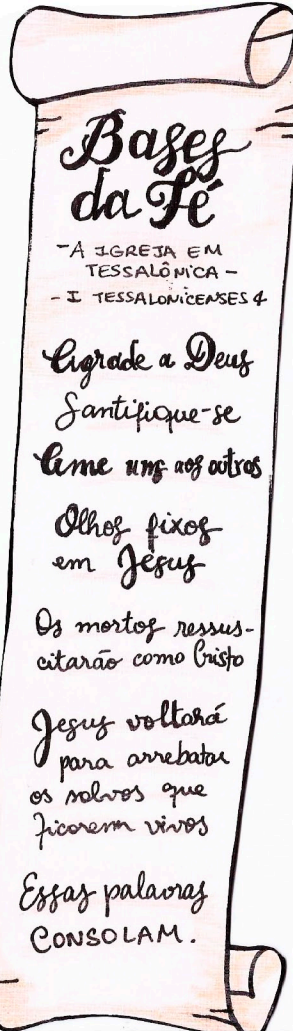 Bases
da Fé
-A IGREJA EM
TESSALÔNICA-
- I TESSALONICENSES 4
Agrade a Deus
Santifique-se
Ame uns aos outros
Olhos fixos
em Jesus
Os mortos ressus-
citarão como Cristo
Jesus voltará
para arrebatar
os salvos que
ficarem vivos
Essas palavras
CONSOLAM.